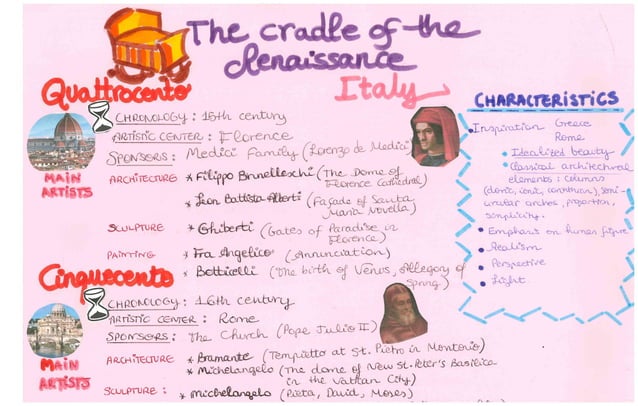 The cradle of the
Renaissance
Italy
Quattrocento
CHRONOLOGY: 15th century
ARTISTIC CENTER: Florence
SPONSORS: Medici Family (Lorenzo de Medici)
MAIN
ARTISTS
ARCHITECTURE * Filippo Brunelleschi (The Dome of
Florence Cathedral)
* Leon Battista Alberti (Façade of Santa
Maria Novella)
SCULPTURE * Ghiberti (Gates of Paradise in
Florence)
PAINTING * Fra Angelico (Annunciation)
* Botticelli (The birth of Venus, Allegory of
Spring)
Cinquecento
CHRONOLOGY: 16th century
ARTISTIC CENTER: Rome
SPONSORS: The Church (Pope Julio II)
MAIN
ARTISTS
ARCHITECTURE * Bramante (Tempietto at St. Pietro in Montorio)
* Michelangelo (The dome of New St. Peter's Basilica
in the Vatican City)
SCULPTURE: * Michelangelo (Pietà, David, Moses)
CHARACTERISTICS
Inspiration Greece
Rome
Idealized beauty
Classical architectural
elements: columns
(doric, ionic, corinthian), semi-
circular arches, proportion,
simplicity.
Emphasis on human figure
Realism
Perspective
Light